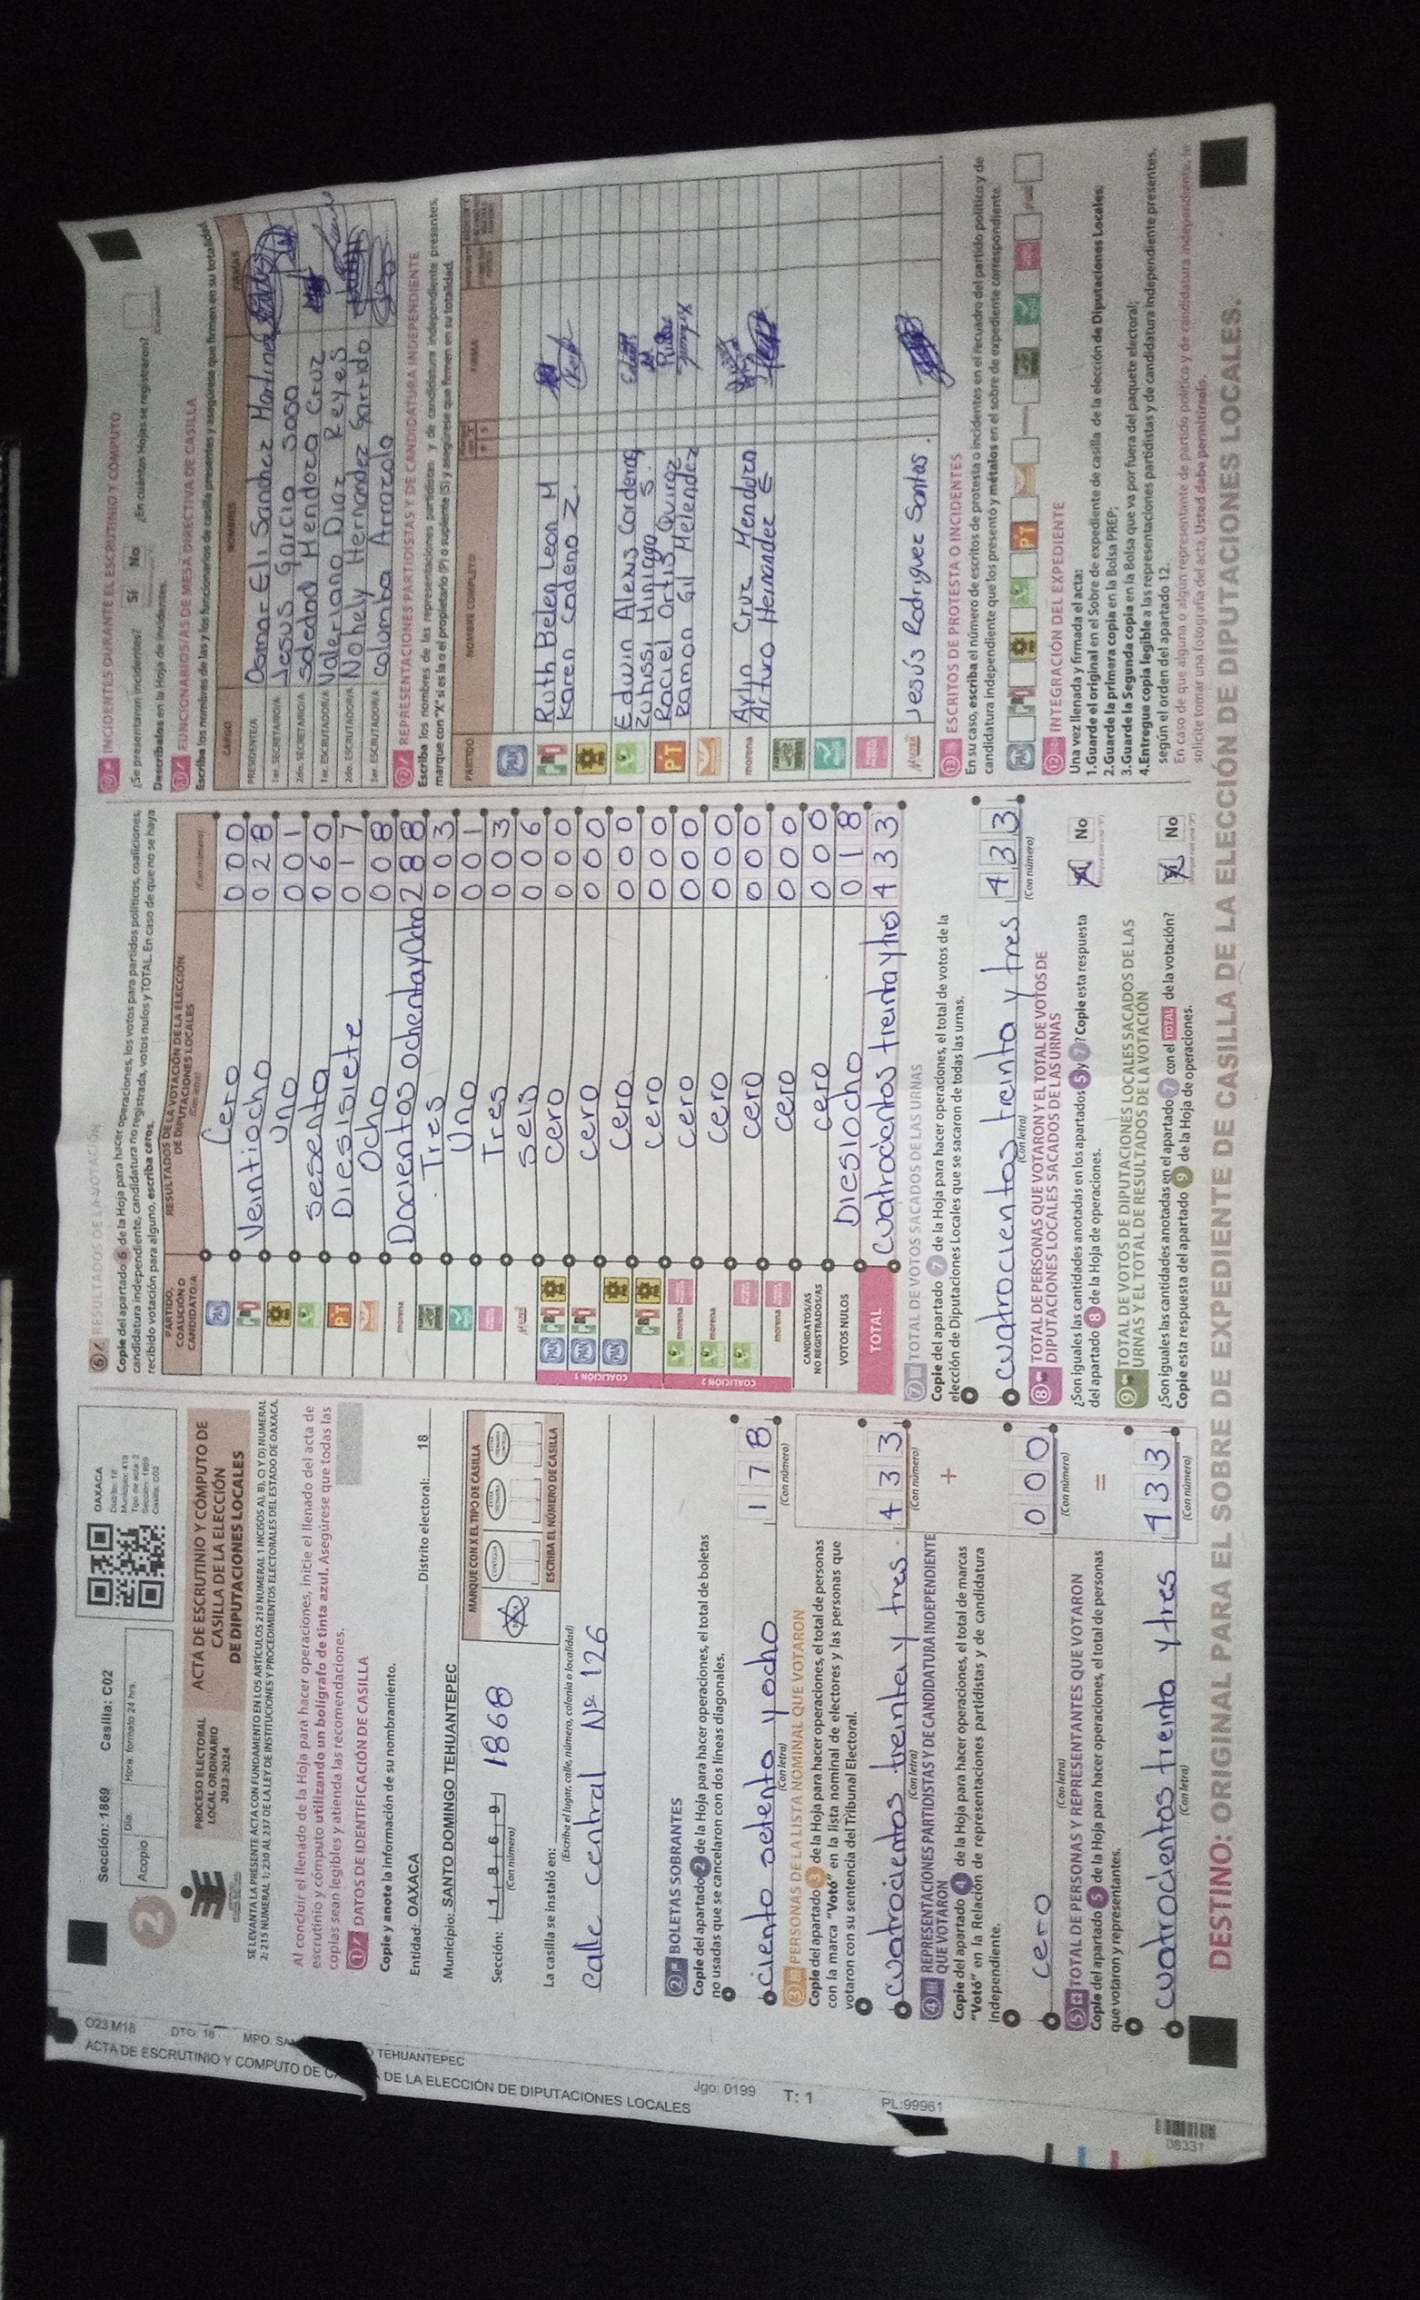 O23 M18
DTO: 18
TEHUANTEPEC
DE LA ELECCIÓN DE DIPUTACIONES LOCALES
Jgo: 0199
T: 1
PL:99961
08331
Sección: 1869 Casilla: C02
2
Acopio
Día:
Hora: formato 24 hrs.
OAXACA
PROCESO ELECTORAL
LOCAL ORDINARIO
2023-2024
ACTA DE ESCRUTINIO Y CÓMPUTO DE
CASILLA DE LA ELECCIÓN
DE DIPUTACIONES LOCALES
SE LEVANTA LA PRESENTE ACTA CON FUNDAMENTO EN LOS ARTÍCULOS 210 NUMERAL 1 INCISOS A), B), C) Y D) NUMERAL
2; 215 NUMERAL 1; 230 AL 237 DE LA LEY DE INSTITUCIONES Y PROCEDIMIENTOS ELECTORALES DEL ESTADO DE OAXACA.
Al concluir el llenado de la Hoja para hacer operaciones, inicie el llenado del acta de
escrutinio y cómputo utilizando un bolígrafo de tinta azul. Asegúrese que todas las
copias sean legibles y atienda las recomendaciones.
1 DATOS DE IDENTIFICACIÓN DE CASILLA
Copie y anote la información de su nombramiento.
Entidad: OAXACA Distrito electoral: 18
Municipio: SANTO DOMINGO TEHUANTEPEC
MARQUE CON X EL TIPO DE CASILLA
Sección: 1 8 6 9 1868
(Con número)
ESCRIBA EL NÚMERO DE CASILLA
La casilla se instaló en:
(Escriba el lugar, calle, número, colonia o localidad)
calle central Nº 126
2 BOLETAS SOBRANTES
Copie del apartado 2 de la Hoja para hacer operaciones, el total de boletas
no usadas que se cancelaron con dos líneas diagonales.
ciento setenta y ocho 1 7 8
(Con letra) (Con número)
3 PERSONAS DE LA LISTA NOMINAL QUE VOTARON
Copie del apartado 3 de la Hoja para hacer operaciones, el total de personas
con la marca "Votó" en la lista nominal de electores y las personas que
votaron con su sentencia del Tribunal Electoral.
cuatrocientos treinta y tres. 4 3 3
(Con letra) (Con número)
4 REPRESENTACIONES PARTIDISTAS Y DE CANDIDATURA INDEPENDIENTE
QUE VOTARON
Copie del apartado 4 de la Hoja para hacer operaciones, el total de marcas
"Votó" en la Relación de representaciones partidistas y de candidatura
independiente.
+
cero 0 0 0
(Con letra) (Con número)
5 TOTAL DE PERSONAS Y REPRESENTANTES QUE VOTARON
Copie del apartado 5 de la Hoja para hacer operaciones, el total de personas
que votaron y representantes.
=
cuatrocientos treinta y tres 4 3 3
(Con letra) (Con número)
6 RESULTADOS DE LA VOTACIÓN
Copie del apartado 6 de la Hoja para hacer operaciones, los votos para partidos políticos, coaliciones,
candidatura independiente, candidatura no registrada, votos nulos y TOTAL. En caso de que no se haya
recibido votación para alguno, escriba ceros.
PARTIDO,
COALICIÓN O
CANDIDATO/A
RESULTADOS DE LA VOTACIÓN DE LA ELECCIÓN
DE DIPUTACIONES LOCALES
(Con letra) (Con número)
PAN Cero 0 0 0
PRI Veintiocho 0 2 8
PRD Uno 0 0 1
sesenta 0 6 0
PT Diesisiete 0 1 7
Ocho 0 0 8
morena Docientos ochenta y Ocho 2 8 8
Tres 0 0 3
Uno 0 0 1
Tres 0 0 3
Mujer seis 0 0 6
COALICIÓN 1
PAN PRI PRD cero 0 0 0
PAN PRI cero 0 0 0
PAN PRD cero 0 0 0
PRI PRD cero 0 0 0
COALICIÓN 2
morena cero 0 0 0
morena cero 0 0 0
cero 0 0 0
morena cero 0 0 0
CANDIDATOS/AS
NO REGISTRADOS/AS cero 0 0 0
VOTOS NULOS Diesiocho 0 1 8
TOTAL cuatrocientos treinta y tres 4 3 3
7 TOTAL DE VOTOS SACADOS DE LAS URNAS
Copie del apartado 7 de la Hoja para hacer operaciones, el total de votos de la
elección de Diputaciones Locales que se sacaron de todas las urnas.
cuatrocientos treinta y tres 4 3 3
(Con letra) (Con número)
8 TOTAL DE PERSONAS QUE VOTARON Y EL TOTAL DE VOTOS DE
DIPUTACIONES LOCALES SACADOS DE LAS URNAS
¿Son iguales las cantidades anotadas en los apartados 5 y 7? Copie esta respuesta
del apartado 8 de la Hoja de operaciones.
No
9 TOTAL DE VOTOS DE DIPUTACIONES LOCALES SACADOS DE LAS
URNAS Y EL TOTAL DE RESULTADOS DE LA VOTACIÓN
¿Son iguales las cantidades anotadas en el apartado 7 con el TOTAL de la votación?
Copie esta respuesta del apartado 9 de la Hoja de operaciones.
No
10 INCIDENTES DURANTE EL ESCRUTINIO Y CÓMPUTO
¿Se presentaron incidentes? Sí No ¿En cuántas Hojas se registraron?
Descríbalos en la Hoja de incidentes.
11 FUNCIONARIOS/AS DE MESA DIRECTIVA DE CASILLA
Escriba los nombres de las y los funcionarios de casilla presentes y asegúrese que firmen en su totalidad.
CARGO NOMBRES FIRMAS
PRESIDENTE/A Osmar Eli Sanchez Medina
1er. SECRETARIO/A Jesus Garcia Soso
2do. SECRETARIO/A soledad Mendoza Cruz
1er. ESCRUTADOR/A Valeriano Diaz Reyes
2do. ESCRUTADOR/A Nohely Hernandez Garrido
3er. ESCRUTADOR/A columba Arrazola
12 REPRESENTACIONES PARTIDISTAS Y DE CANDIDATURA INDEPENDIENTE
Escriba los nombres de las representaciones partidistas y de candidatura independiente presentes,
marque con "X" si es la o el propietario (P) o suplente (S) y asegúrese que firmen en su totalidad.
PARTIDO NOMBRE COMPLETO P S FIRMA
PAN
PRI Ruth Belen Leon M
Karen Cadeno Z.
PRD
Edwin Alexis Corderos
Zuhissi Hiniago S.
PT Raciel Ortiz Quiroz
Ramon Gil Melendez
morena Aylin Cruz Mendoza
Arturo Hernandez E
Mujer Jesús Rodriguez Santos.
ESCRITOS DE PROTESTA O INCIDENTES
En su caso, escriba el número de escritos de protesta o incidentes en el recuadro del partido político y de
candidatura independiente que los presentó y métalos en el sobre de expediente correspondiente.
PAN PRI PRD PT
INTEGRACIÓN DEL EXPEDIENTE
Una vez llenada y firmada el acta:
1.Guarde el original en el Sobre de expediente de casilla de la elección de Diputaciones Locales;
2.Guarde la primera copia en la Bolsa PREP;
3.Guarde la Segunda copia en la Bolsa que va por fuera del paquete electoral;
4.Entregue copia legible a las representaciones partidistas y de candidatura independiente presentes,
según el orden del apartado 12.
En caso de que alguna o algún representante de partido político y de candidatura independiente, le
solicite tomar una fotografía del acta, Usted debe permitírselo.
DESTINO: ORIGINAL PARA EL SOBRE DE EXPEDIENTE DE CASILLA DE LA ELECCIÓN DE DIPUTACIONES LOCALES.